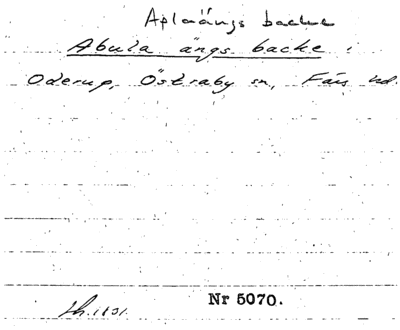 Aplaängs backe
Abula ängs backe.
Oderup, Östraby sn, Färs hd.
Nr 5070.